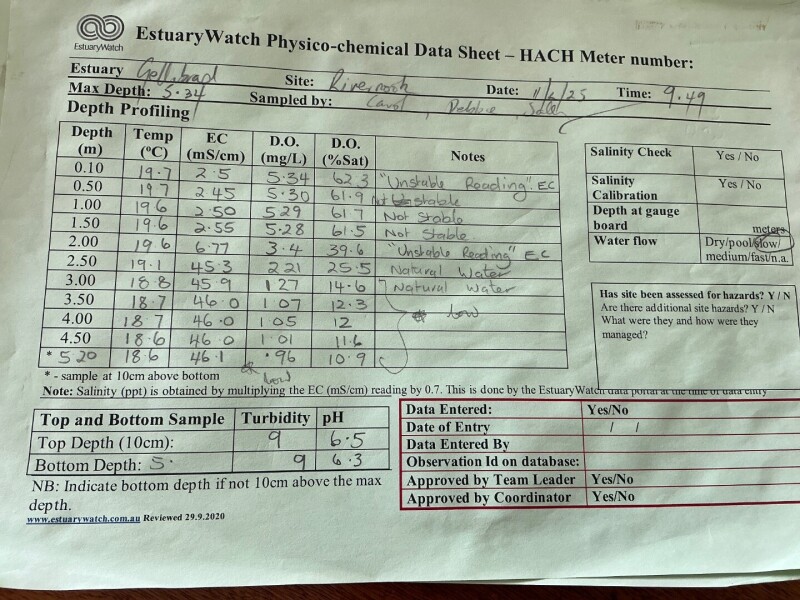 EstuaryWatch
EstuaryWatch Physico-chemical Data Sheet – HACH Meter number:
Estuary Gellibrand Site: Rivernook Date: Time: 9.49
Max Depth: 5.34 Sampled by: Carol, Debbie,
Depth Profiling
Depth (m) Temp (°C) EC (mS/cm) D.O. (mg/L) D.O. (%Sat) Notes
0.10 19.7 2.5 5.34 62.3 "Unstable Reading" EC
0.50 19 7 2 45 5.30 61.9 not stable
1.00 19 6 2.50 5 29 61 7 Not Stable
1.50 19.6 2.55 5.28 61.5 Not Stable
2.00 19 6 6.77 3.4 39.6 "Unstable Reading" EC
2.50 19.1 45.3 2 21 25.5 Natural Water
3.00 18.8 45.9 1 27 14.6 Natural Water
3.50 18.7 46.0 1 07 12.3 low
4.00 18 7 46.0 1 05 12
4.50 18.6 46 0 1 01 11.6
* 5 20 18.6 46.1 .96 10.9
low
* - sample at 10cm above bottom
Note: Salinity (ppt) is obtained by multiplying the EC (mS/cm) reading by 0.7. This is done by the EstuaryWatch data portal at the time of data entry
Salinity Check Yes / No
Salinity Calibration Yes / No
Depth at gauge board meters
Water flow Dry/pool/slow/
medium/fast/n.a.
Has site been assessed for hazards? Y / N
Are there additional site hazards? Y / N
What were they and how were they
managed?
Top and Bottom Sample Turbidity pH
Top Depth (10cm): 9 6.5
Bottom Depth: 5. 9 6.3
NB: Indicate bottom depth if not 10cm above the max
depth.
www.estuarywatch.com.au Reviewed 29.9.2020
Data Entered: Yes/No
Date of Entry / /
Data Entered By
Observation Id on database:
Approved by Team Leader Yes/No
Approved by Coordinator Yes/No